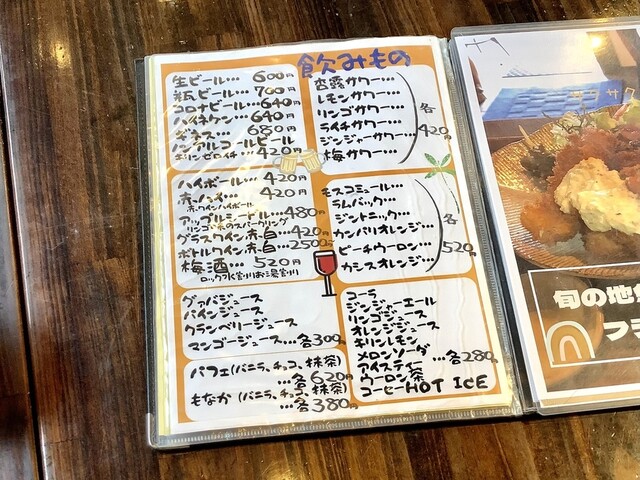 飲みもの
生ビール… 600円
瓶ビール… 700円
コロナビール… 640円
ハイネケン… 640円
ギネス… 680円
ノンアルコールビール
キリンゼロイチ… 420円
杏露サワー…
レモンサワー…
リンゴサワー…
ライチサワー…
ジンジャーサワー…
梅サワー…
各420円
ハイボール… 420円
赤ハイ… 420円
赤ワインハイボール
アップルミードル… 480円
リンゴの味のスパークリング
グラスワイン赤・白… 420円
ボトルワイン赤・白… 2500〜
梅酒… 520円
ロック水割りお湯割り
モスコミュール…
ラムバック…
ジントニック…
カンパリオレンジ…
ピーチウーロン…
カシスオレンジ…
各520円
グァバジュース
パインジュース
クランベリージュース
マンゴージュース…各300円
パフェ(バニラ、チョコ、抹茶)
…各620円
もなか(バニラ、チョコ、抹茶)
…各380円
コーラ
ジンジャーエール
リンゴジュース
オレンジジュース
キリンレモン
メロンソーダ
アイスティ …各280円
ウーロン茶
コーヒーHOT ICE
旬の地魚
フラ